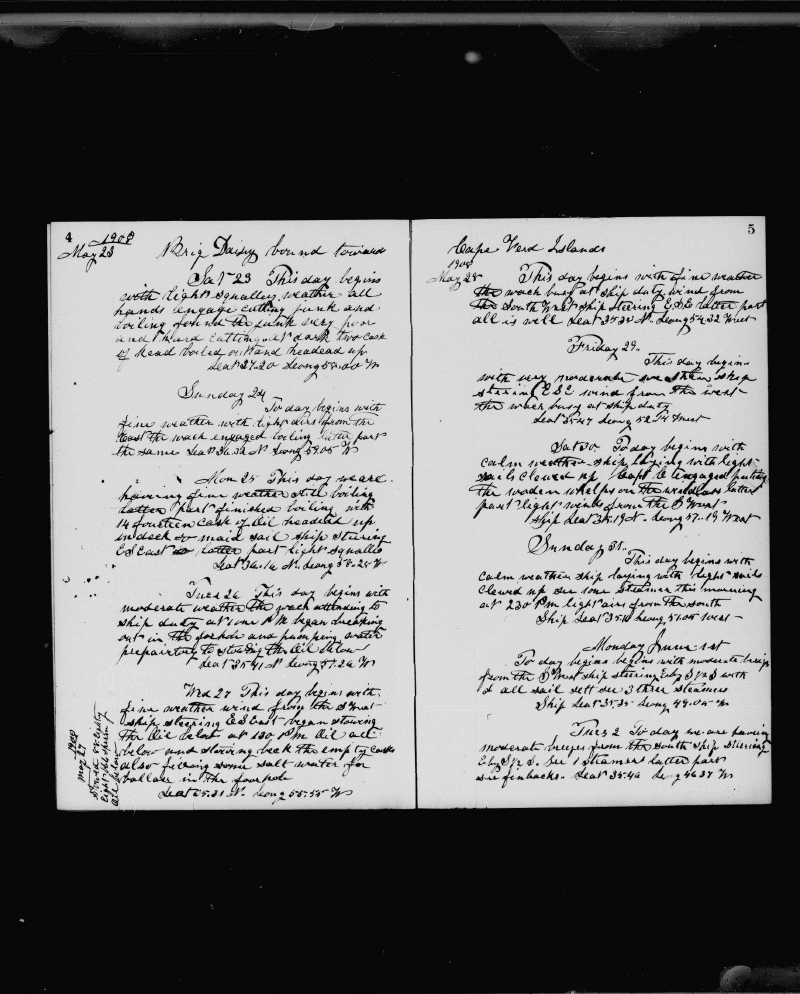 4 1908
May 23 Brig Daisy bound toward
Sat 23 This day begins
with light squalley weather all
hands engage cutting junk and
boiling found the junk very poor
and thurd cutting at dark two cask
of head boiled out and headed up
Leat 37.20 Leong 58.00 W
Sunday 24
To day begins with
fine weather with light airs from the
East the wach engaged boiling latter part
the same Leat 36.32 N Leong 59.05 W
Mon 25 This day we are
haveing fine weather still boiling
latter part finished boiling with
14 fourteen cask of Oil headed up
on deck so maid sail ship steering
E S East latter part light squalles
Leat 36.16 N. Leong 58.25 W
Tues 26 This day begins with
moderate weather the wach attending to
ship duty at 1 one P M began breaking
out in the forhole and pumping water
prepairtry to stowing the Oil below
Leat 35.41 N Leong 57.26 W
Wed 27 This day begins with
fine weather wind from the S West
ship steering E S East began stowing
the Oil below at 130 P M Oil all
below and stowing back the empty casks
also filling some salt water for
ballast in the forhole
Leat 35.31 N. Leong 55.55 W
1908
May 27
Stowed
eight bbls sperm
oil below
5
Cape Verd Islands
1908
May 28 This day begins with fine weather
the wach busy at ship duty wind from
the South West ship steering E S E latter part
all is well Leat 34.35 N. Leong 54.32 West
Friday 29.
This day begins
with very moderate weather ship
stering E S E wind from the west
the wach busy at ship duty
Leat 35.47 Leong 52.14 West
Sat 30 To day begins with
calm weather ship laying with light
sails clewed up Capt & engaged putting
the wooden whelps on the windlass latter
part light winds from the S West
Ship Leat 35.19 N. Leong 51.19 West
Sunday 31.
This day begins with
calm weather ship laying with light sails
clewed up see one Steamer this morning
at 230 P M light airs from the South
Ship Leat 35.10 Leong 51.05 West
Monday June 1st
To day begins begins with moderate breeze
from the S West ship steering E by S 1/2 S with
all sail sett see 3 three steamers
Ship Leat 35.35 Leong 49.05 W
Tues 2 To day we are haveing
moderate breezes from the south ship steering
E by S 1/2 S. See 1 steamer latter part
see finbacks. Leat 35.40 Leong 46.37 W